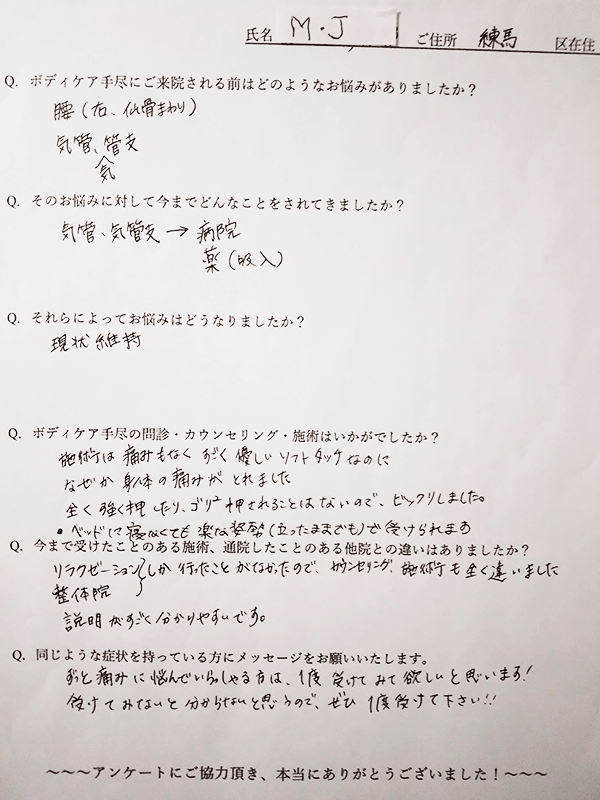 氏名 M・J ご住所 練馬 区在住
Q. ボディケア手尽にご来院される前はどのようなお悩みがありましたか？
腰(右、仙骨まわり)
気管、管支
気
Q. そのお悩みに対して今までどんなことをされてきましたか？
気管、気管支 → 病院
薬(吸入)
Q. それらによってお悩みはどうなりましたか？
現状維持
Q. ボディケア手尽の問診・カウンセリング・施術はいかがでしたか？
施術は痛みもなく すごく 優しい ソフトタッチなのに
なぜか 身体の痛みが とれました
全く強く押したり、ゴリ² 押されることは ないので、ビックリしました。
・ベッドに寝なくても 楽な姿勢(立ったままでも)で 受けられます
Q. 今まで受けたことのある施術、通院したことのある他院との違いはありましたか？
リラクゼーション }しか 行ったことが なかったので、カウンセリング、施術も全く違いました
整体院
説明がすごく分かりやすいです。
Q. 同じような症状を持っている方にメッセージをお願いいたします。
ずっと痛みに悩んでいらっしゃる方は、1度 受けてみて欲しいと思います!
受けてみないと分からないと思うので、ぜひ 1度受けて下さい!!
～～～アンケートにご協力頂き、本当にありがとうございました！～～～